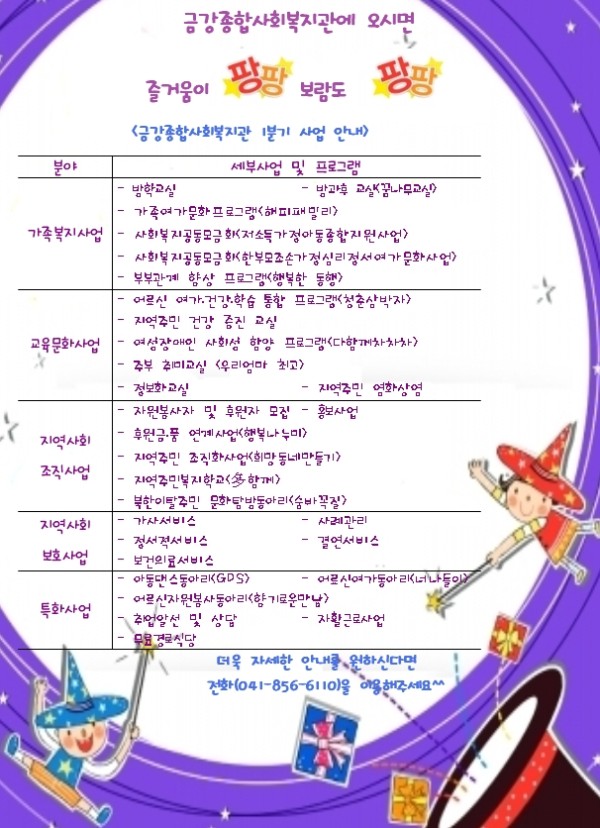 금강종합사회복지관에 오시면
즐거움이 팡팡 보람도 팡팡
<금강종합사회복지관 1분기 사업 안내>
분야 세부사업 및 프로그램
가족복지사업
- 방학교실 - 방과후 교실(꿈나무교실)
- 가족여가문화프로그램(해피패밀리)
- 사회복지공동모금회(저소득가정아동종합지원사업)
- 사회복지공동모금회(한부모조손가정심리정서여가문화사업)
- 부부관계 향상 프로그램(행복한 동행)
교육문화사업
- 어르신 여가.건강.학습 통합 프로그램(청춘삼박자)
- 지역주민 건강 증진 교실
- 여성장애인 사회성 함양 프로그램(다함께차차차)
- 주부 취미교실 (우리엄마 최고)
- 정보화교실 - 지역주민 영화상영
지역사회
조직사업
- 자원봉사자 및 후원자 모집 - 홍보사업
- 후원금.품 연계사업(행복나누미)
- 지역주민 조직화사업(희망동네만들기)
- 지역주민복지학교(多함께)
- 북한이탈주민 문화탐방동아리(숨바꼭질)
지역사회
보호사업
- 가사서비스 - 사례관리
- 정서적서비스 - 결연서비스
- 보건의료서비스
특화사업
- 아동댄스동아리(GPS) - 어르신여가동아리(너나들이)
- 어르신자원봉사동아리(향기로운만남)
- 취업알선 및 상담 - 자활근로사업
- 무료경로식당
더욱 자세한 안내를 원하신다면
전화(041-856-6110)을 이용해주세요^^